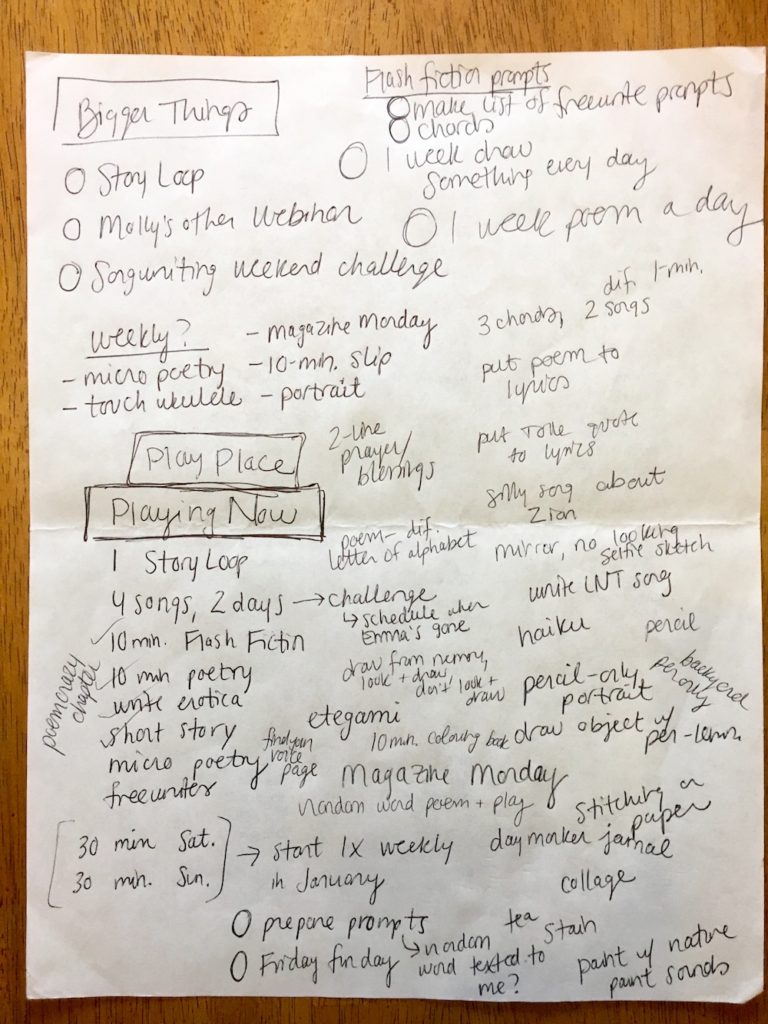 Bigger Things
Story Loop
Molly's other webinar
Songwriting weekend challenge
Flash fiction prompts
make list of freewrite prompts
chords
1 week draw
something every day
1 week poem a day
weekly?
- micro poetry
- touch ukulele
- magazine monday
- 10-min. slip
- portrait
3 chords, 2 songs
dif. 1-min.
put poem to
lyrics
put Tolle quote
to lyrics
silly song about
Zion
Play Place
2-line
prayer/
blessings
Playing Now
1 Story Loop
4 songs, 2 days → challenge
↳ schedule when
Emma's gone
10 min. Flash Fictin
10 min poetry
write erotica
short story
micro poetry
freewrites
poemcrazy
chapter
poem- dif.
letter of alphabet
mirror, no looking
selfie sketch
write LNT song
haiku
pencil
draw from memory,
look + draw
don't look +
draw
pencil-only
portrait
backyard
pen only
etegami
find your
voice
page
10 min. colouring book
draw object w/
pen-1 cm.
Magazine Monday
random word poem + play
stitching on
paper
30 min Sat.
30 min. Sun.
→ start 1x weekly
in January
day marker jornal
collage
prepare prompts
↳ random
word texted to
me?
Friday fun day
tea
stain
paint w/ nature
paint sounds